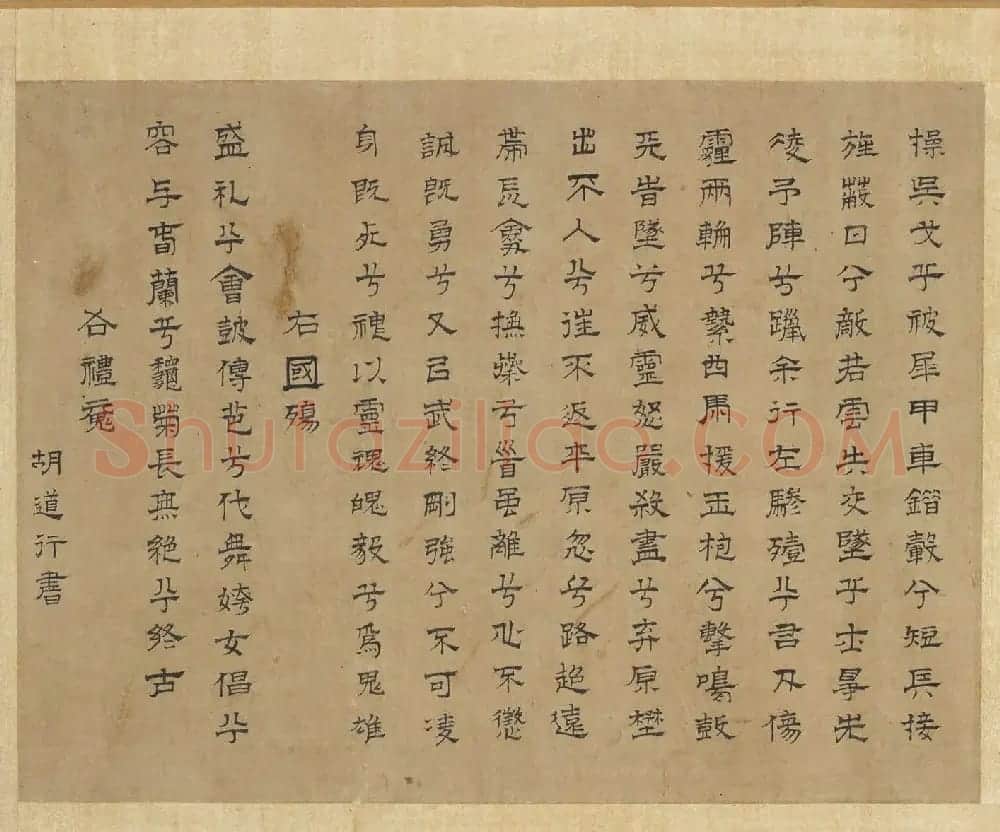 操吳戈兮被犀甲車錯轂兮短兵接
旌蔽日兮敵若雲矢交墜兮士爭先
凌予陣兮躐余行左驂殪兮右刃傷
霾兩輪兮縶四馬援玉枹兮擊鳴鼓
天時墜兮威靈怒嚴殺盡兮弃原壄
出不入兮往不返平原忽兮路超遠
帶長劍兮挾秦弓首雖離兮心不懲
誠既勇兮又以武終剛強兮不可凌
身既死兮神以靈魂魄毅兮為鬼雄
右國殤
盛礼兮會鼓傳芭兮代舞姱女倡兮
容与春蘭兮秋菊長無絕兮終古
右禮魂
胡道行書
Shufaziliao.COM